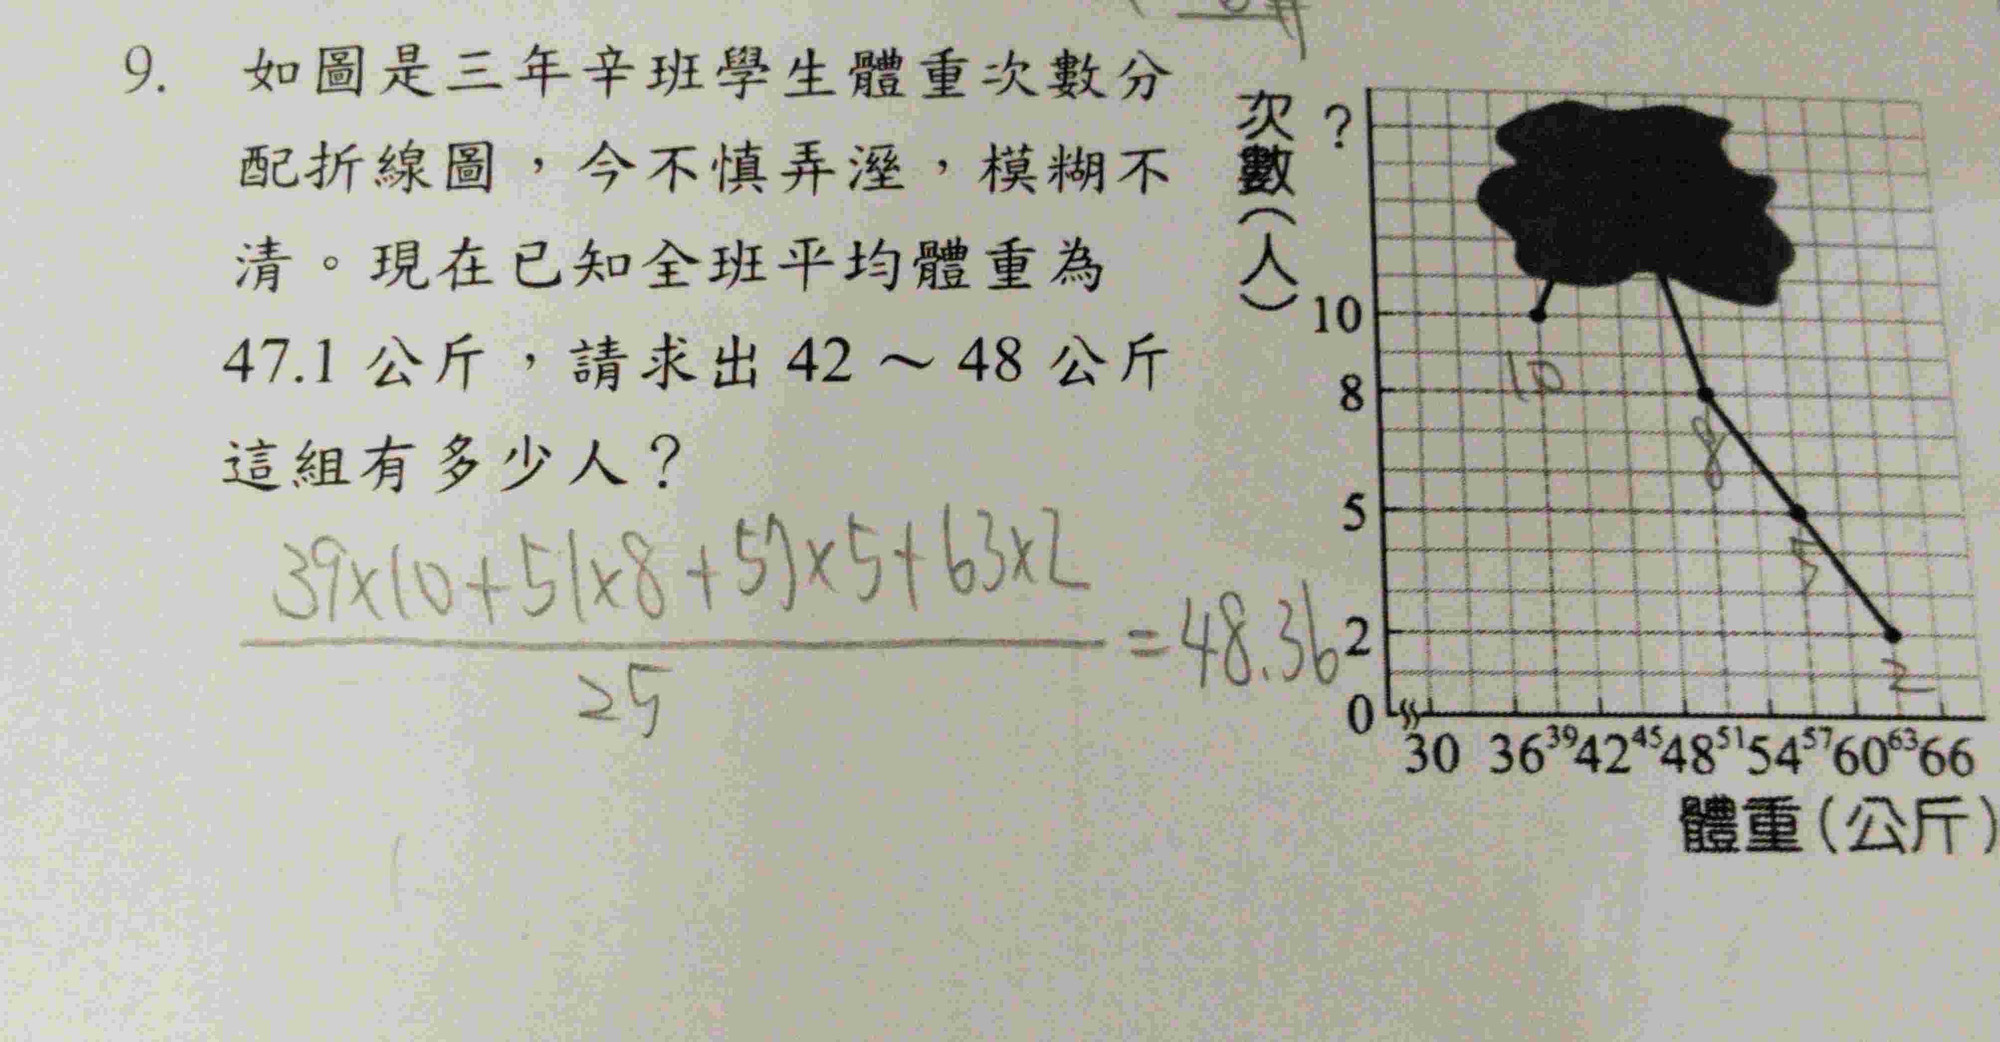 9. 如圖是三年辛班學生體重次數分
配折線圖，今不慎弄溼，模糊不
清。現在已知全班平均體重為
47.1 公斤，請求出 42 ～ 48 公斤
這組有多少人？
39×10+51×8+57×5+63×2
25
=48.36
次數（人）
?
10
8
5
2
0
10
8
5
2
30 36 39 42 45 48 51 54 57 60 63 66
體重（公斤）